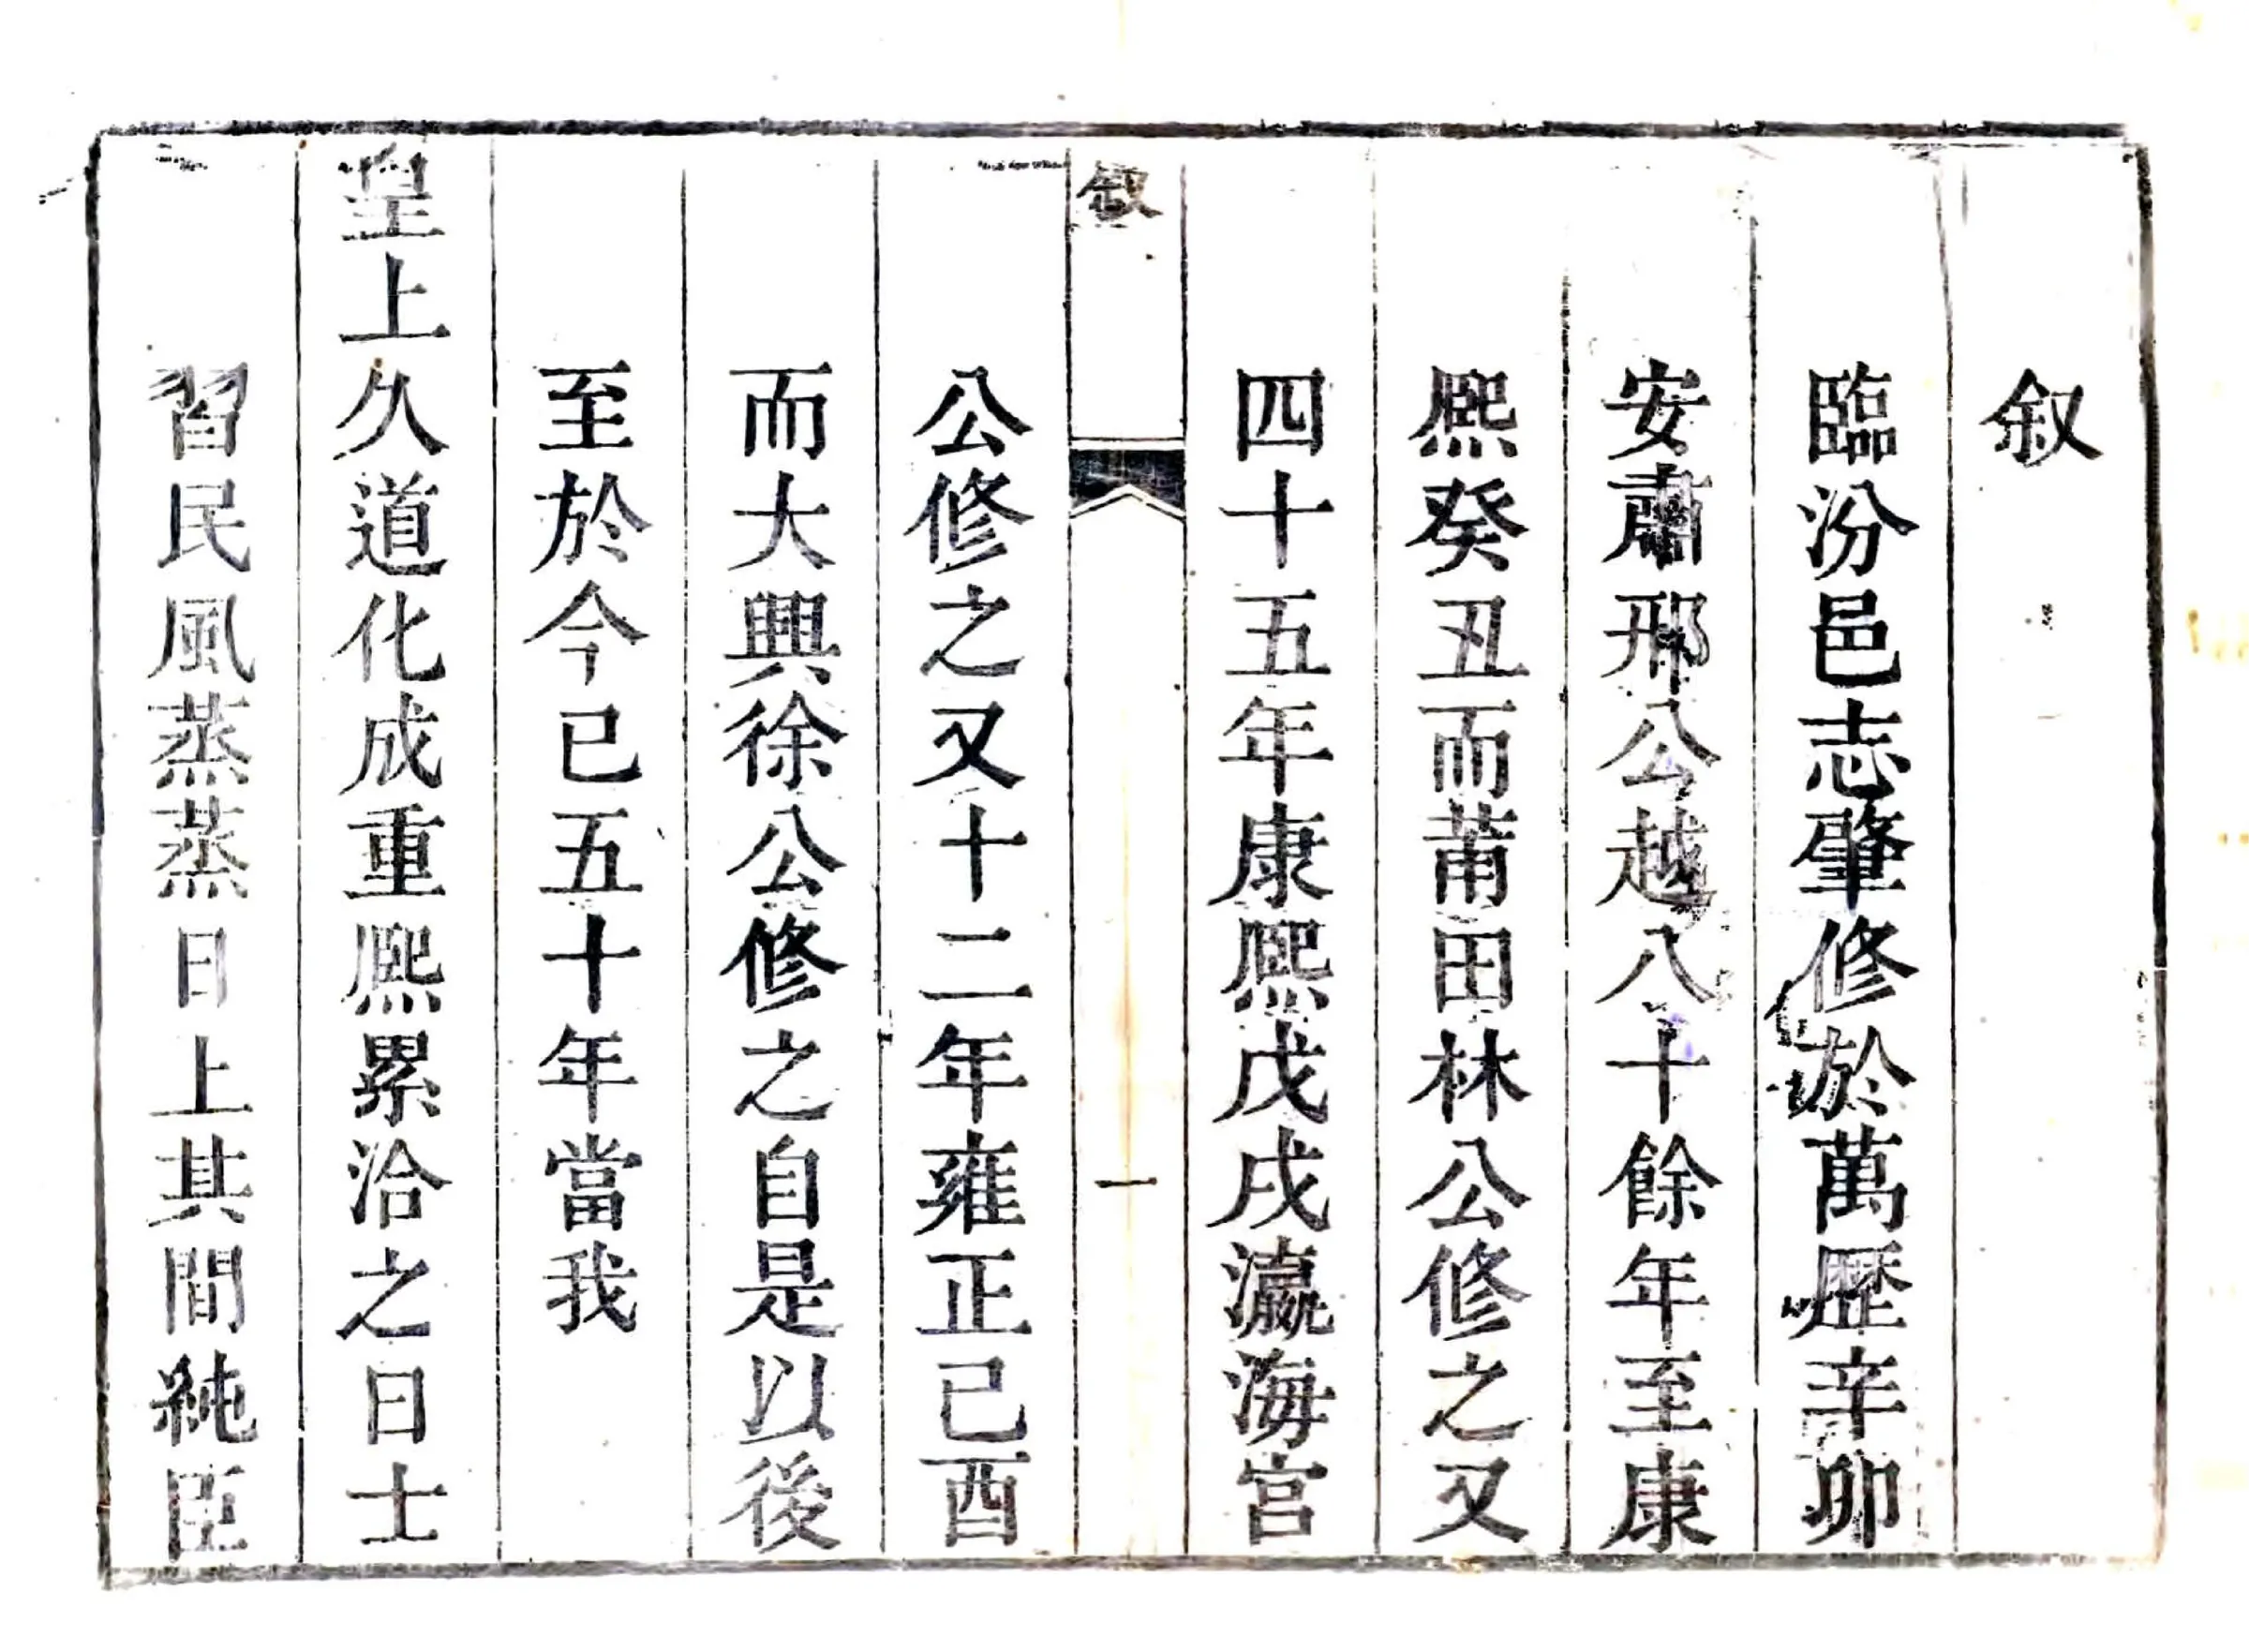 叙
臨汾邑志肇修於萬歷辛卯
安肅邢公越八十餘年至康
熙癸丑而莆田林公修之又
四十五年康熙戊戌瀛海宫
叙
一
公修之又十二年雍正已酉
而大興徐公修之自是以後
至於今已五十年當我
皇上久道化成重熙累洽之日士
習民風蒸蒸日上其間純臣